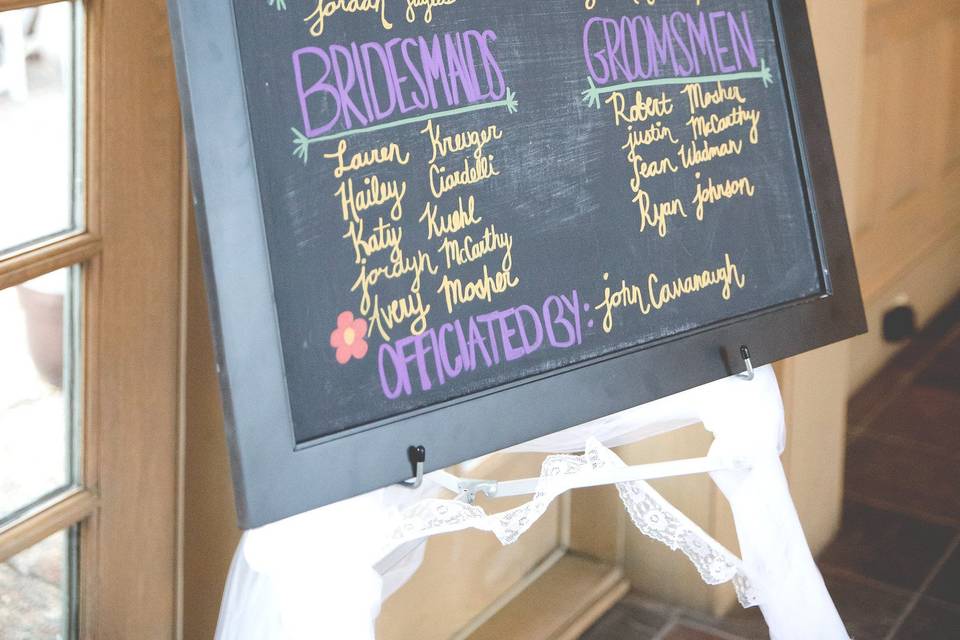 Jordan
BRIDESMAIDS
Lauren Kreuger
Hailey Ciardelli
Katy Kuehl
Jordyn McCarthy
Avery Mosher
GROOMSMEN
Robert Mosher
Justin McCarthy
Sean Wadman
Ryan Johnson
OFFICIATED BY: John Cavanaugh